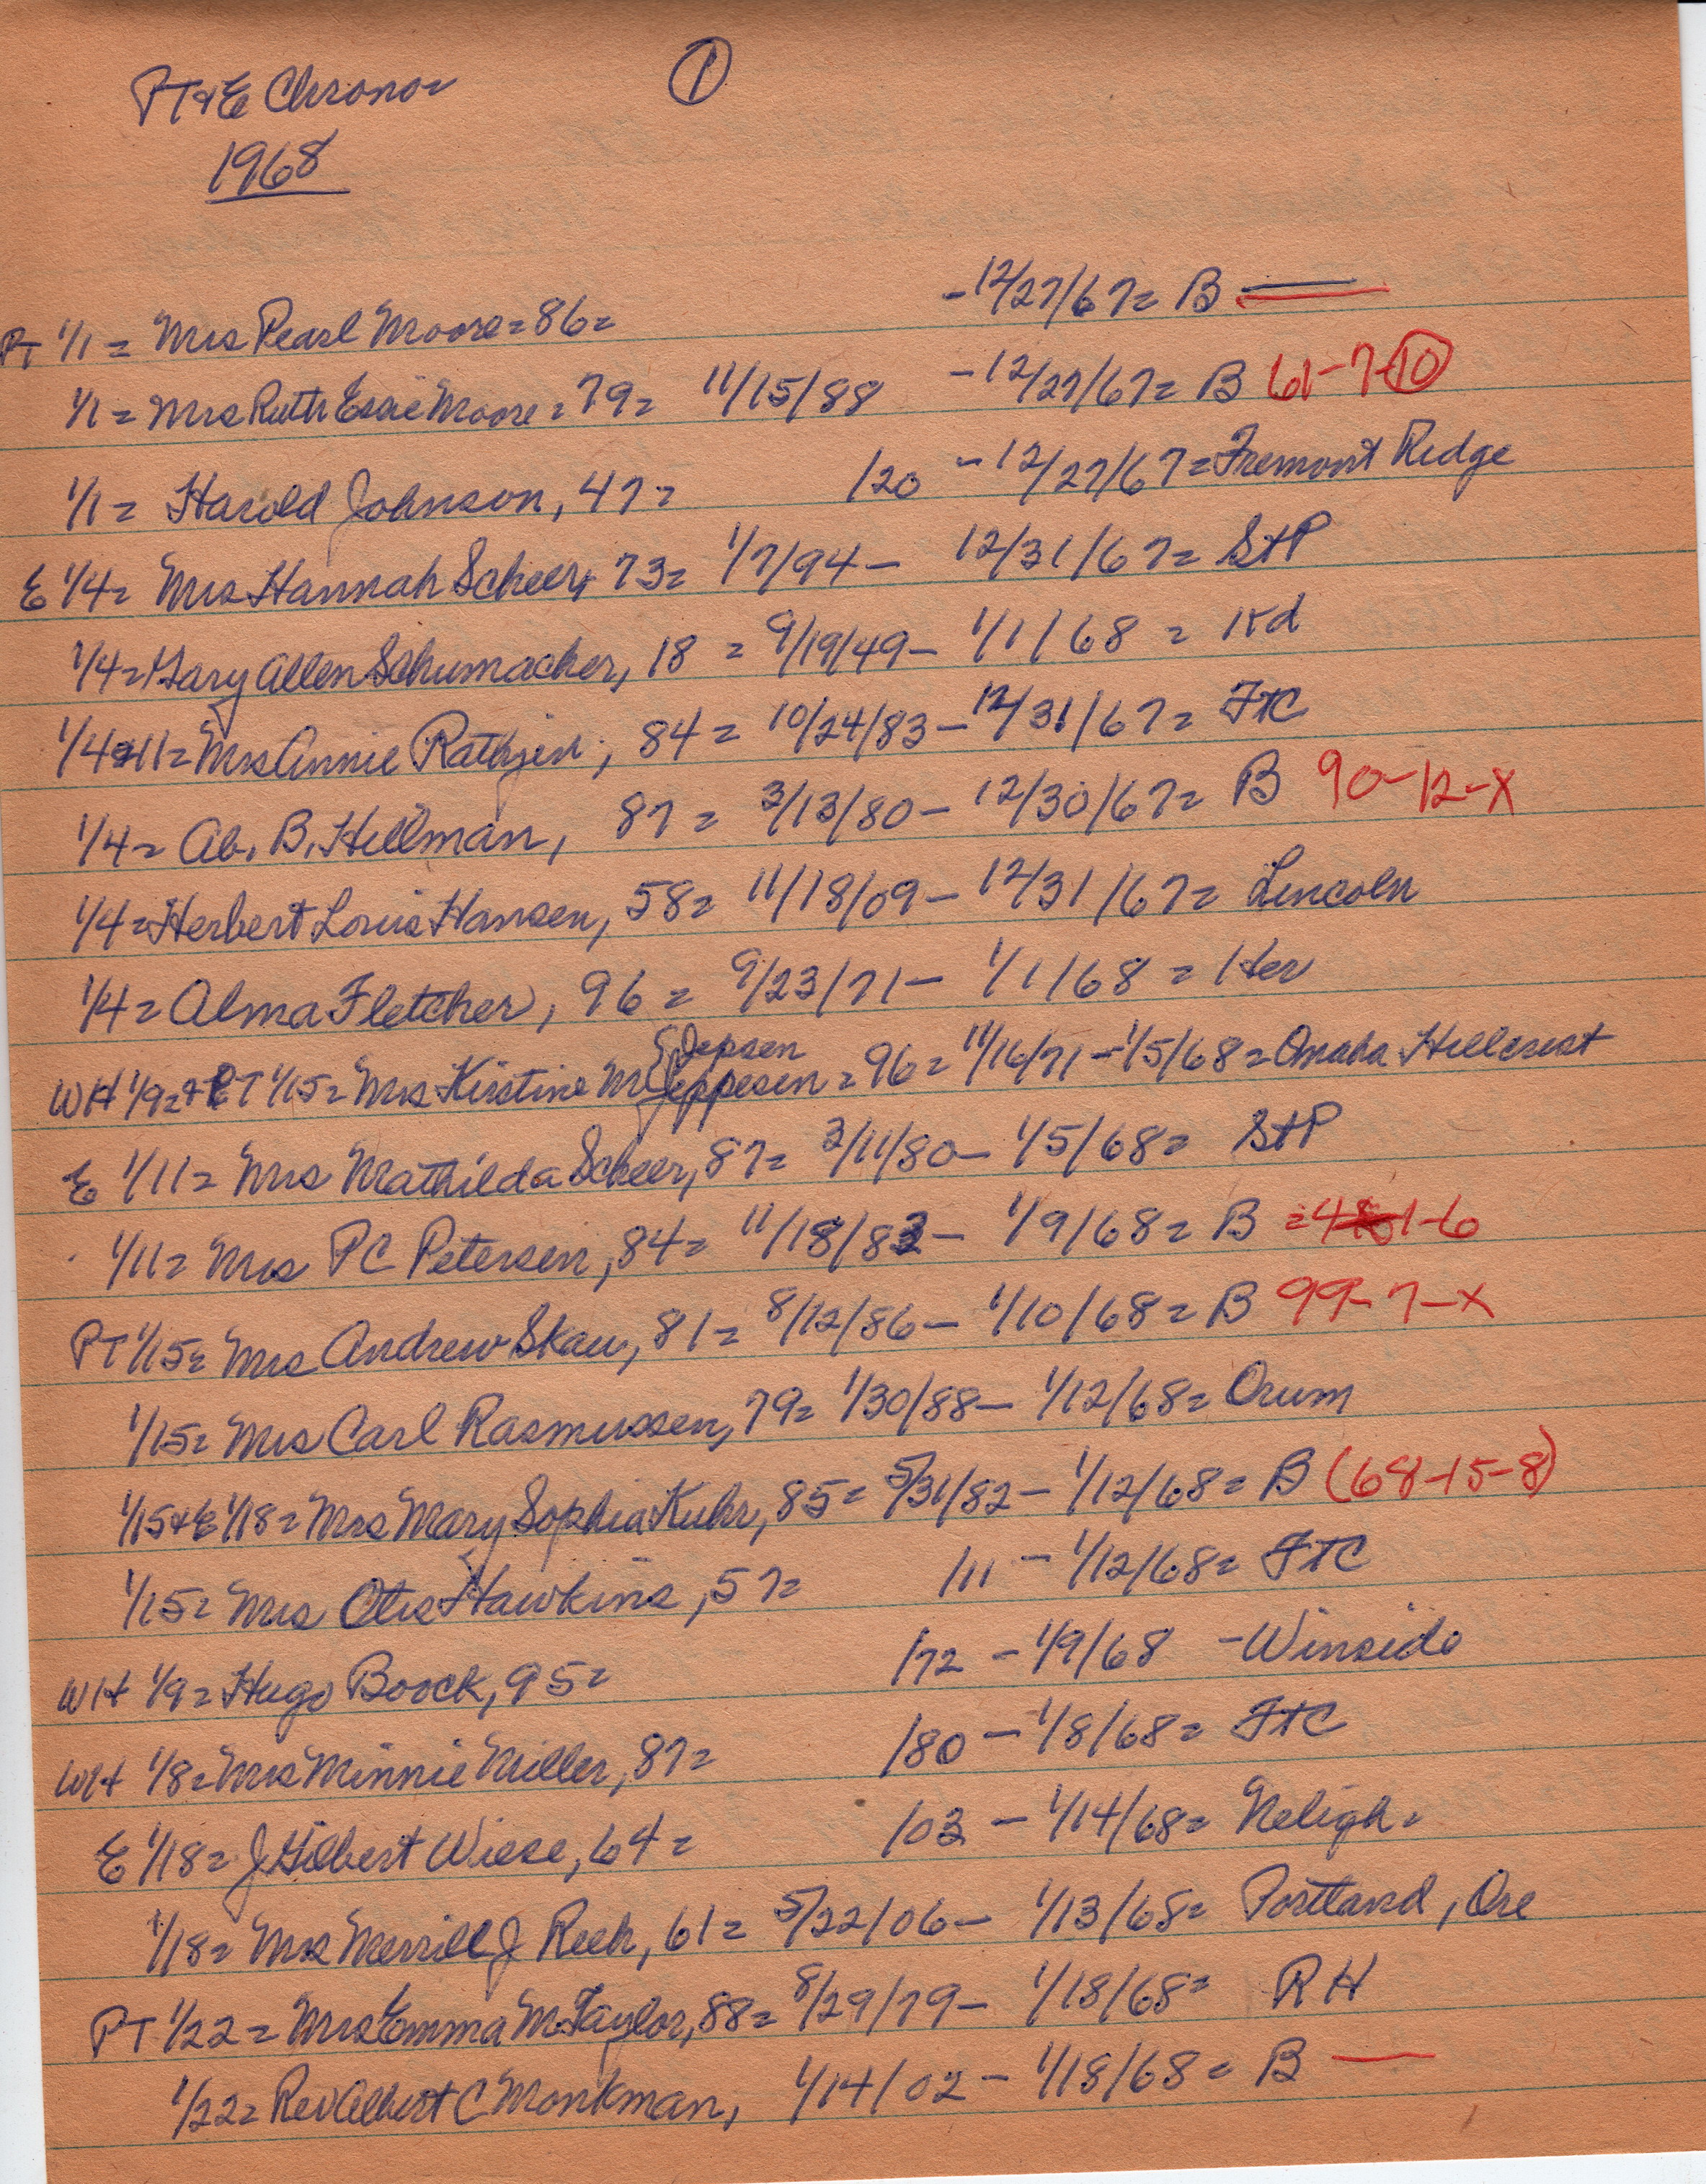 PT & E Chrono= ①
1968
PT 1/1 = Mrs Pearl Moore = 86 = - 12/27/67 = B
1/1 = Mrs Ruth Essie Moore = 79 = 11/15/88 - 12/27/67 = B 61-7-⑩
1/1 = Harold Johnson, 47 = /20 - 12/27/67 = Fremont Ridge
E 1/4 = Mrs Hannah Scheer, 73 = 1/7/94 - 12/31/67 = StP
1/4 = Gary Allen Schumacher, 18 = 9/19/49 - 1/1/68 = Kd
1/4 & 11 = Mrs Annie Rathjen, 84 = 10/24/83 - 12/31/67 = FTC
1/4 = Ab. B. Hillman, 87 = 3/13/80 - 12/30/67 = B 90-12-X
1/4 = Herbert Louis Hansen, 58 = 11/18/09 - 12/31/67 = Lincoln
1/4 = Alma Fletcher, 96 = 9/23/71 - 1/1/68 = Her
WH 1/9 = & PT 1/15 = Mrs Kirstine M { Jepsen Jeppesen = 96 = 11/16/71 - 1/5/68 = Omaha Hillcrest
E 1/11 = Mrs Mathilda Scheer, 87 = 3/11/80 - 1/5/68 = StP
1/11 = Mrs PC Petersen, 84 = 11/18/83 - 1/9/68 = B = 4 1-6
PT 1/15 = Mrs Andrew Skau, 81 = 8/12/86 - 1/10/68 = B 99-7-X
1/15 = Mrs Carl Rasmussen, 79 = 1/30/88 - 1/12/68 = Orum
1/15 & E 1/18 = Mrs Mary Sophia Kuhr, 85 = 5/31/82 - 1/12/68 = B (68-15-8)
1/15 = Mrs Otis Hawkins, 57 = /11 - 1/12/68 = FTC
WH 1/9 = Hugo Boock, 95 = /72 - 1/9/68 - Winside
WH 1/8 = Mrs Minnie Miller, 87 = /80 - 1/8/68 = FTC
E 1/18 = J Gilbert Wiese, 64 = /03 - 1/14/68 = Neligh =
1/18 = Mrs Merrill J Reeh, 61 = 5/22/06 - 1/13/68 = Portland, Ore
PT 1/22 = Mrs Emma M Taylor, 88 = 8/29/79 - 1/18/68 = RH
1/22 = Rev Albert C Monkman, 1/14/02 - 1/18/68 = B